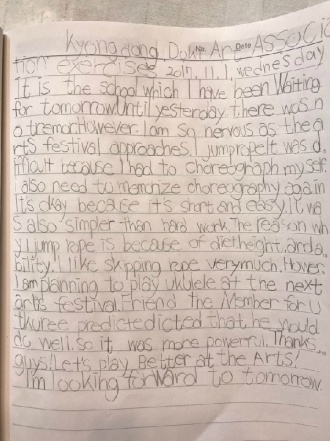 Kyongdong Down Art Associa
tion exercises 2017. 11. 1, wednesday
It Is the school which I have been Waiting
for tomorrow until yesterday there was n
o tremor. However. I am so nervous as the a
rts festival approaches. I jumprope It was d.
ifficult because I had to choreograph my self.
I also need to memorize choreography again
It's okay because it's short and easy. it wa
s also simpler than hard work. The reason wh
y I jump rope is because of diet height, and a
bility. I like skipping rope very much. Hower.
I am planning to play ukulele at the next
arts festival. Friend the Member for U
thuree predictedicted that he would
do well. so it was more powerful. Thanks
guys! Let's play Better at the Arts!
I'm looking forward to tomorrow